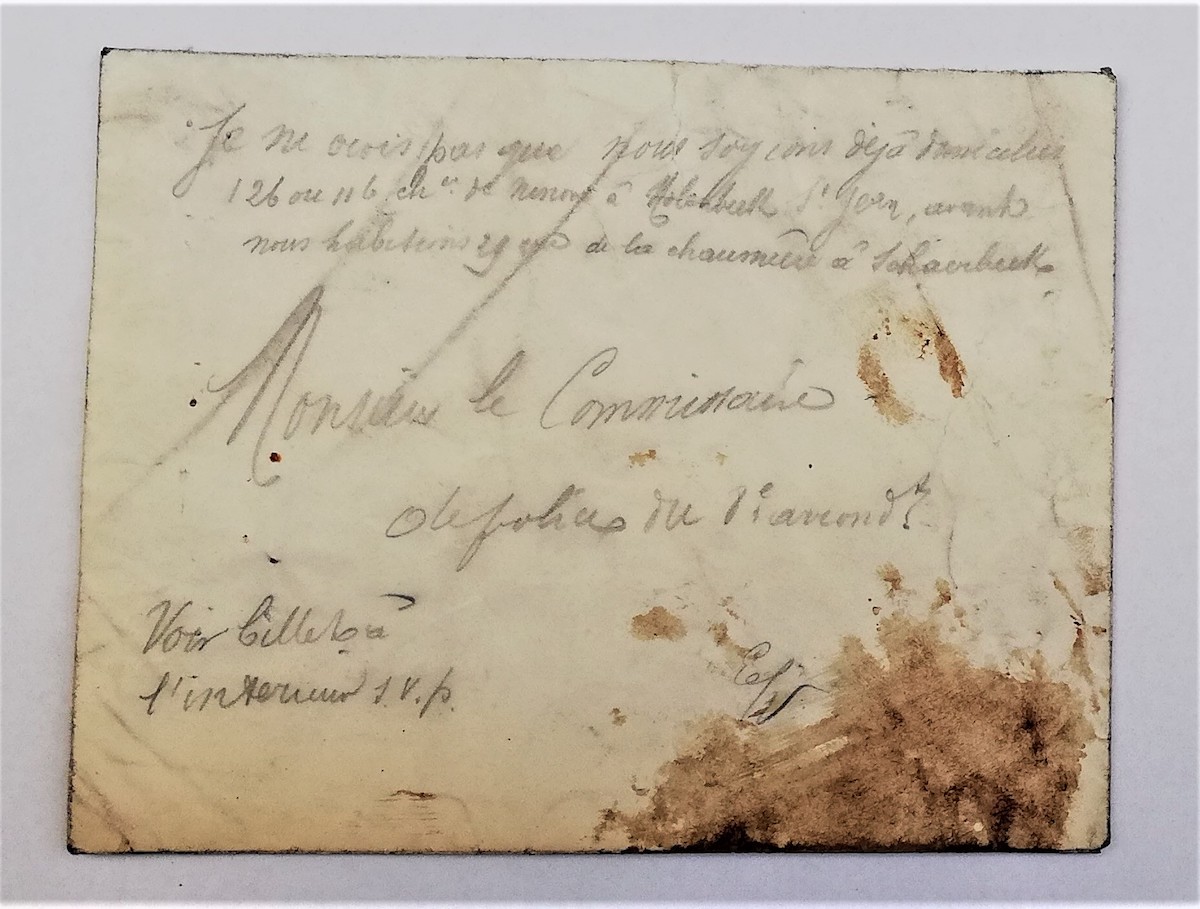 Je ne crois pas que nous soyions déjà domiciliés
126 ou 116 ch.ée de Ninove à Molenbeek St Jean, avant
nous habitions 29 rue de la chaumière à Schaerbeek.
Monsieur le Commissaire
de police du 1e arrondt.
Voir billet à
l'intérieur s.v.p.